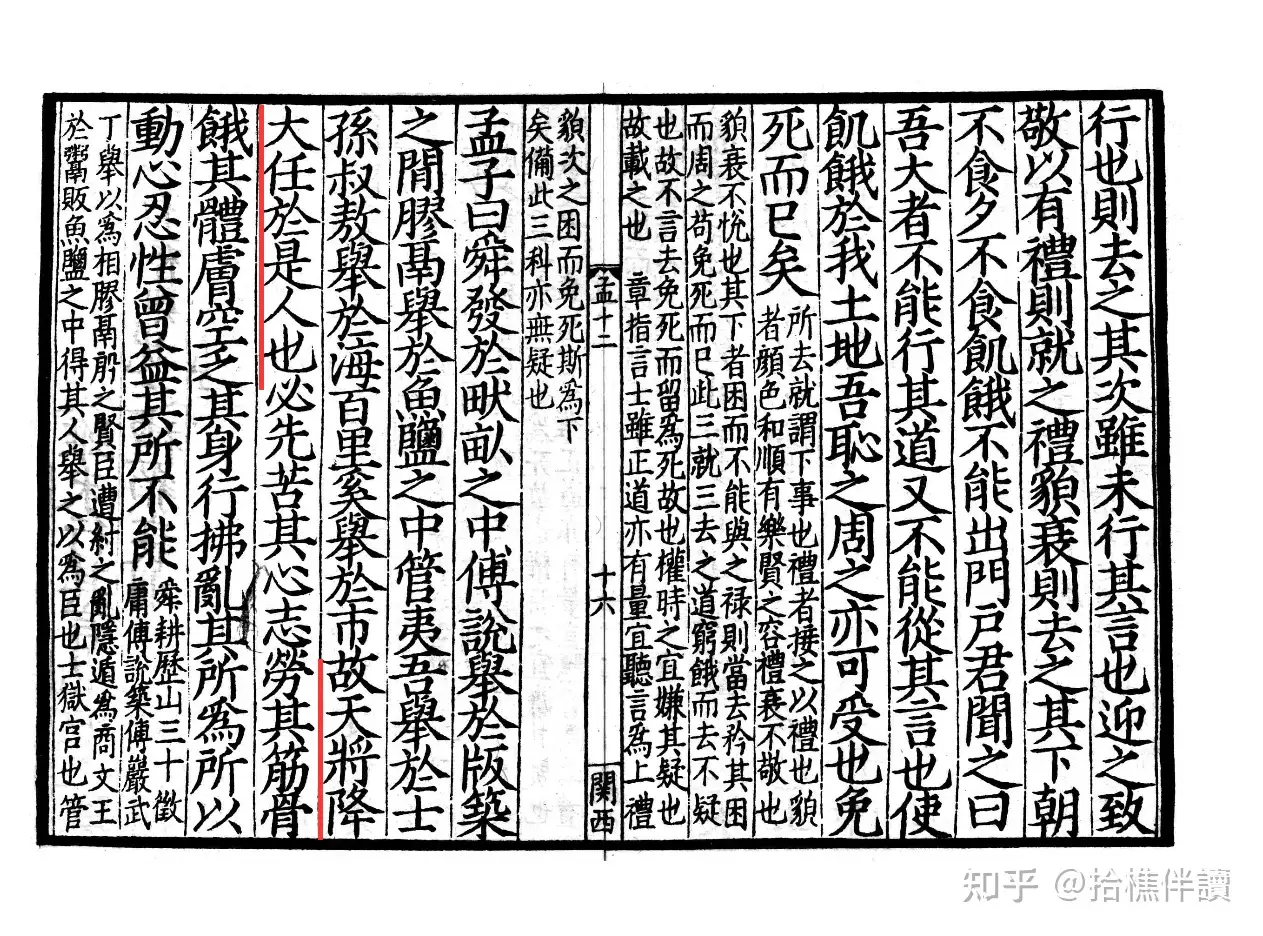 行也則去之其次雖未行其言也迎之致
敬以有禮則就之禮貌衰則去之其下朝
不食夕不食飢餓不能出門戶君聞之曰
吾大者不能行其道又不能從其言也使
飢餓於我土地吾恥之周之亦可受也免
死而已矣
所去就謂下事也禮者接之以禮也貌
者顏色和順有樂賢之容禮衰不敬也
貌衰不悅也其下者困而不能與之禄則當去矜其困
而周之苟免死而已此三就三去之道窮餓而去不疑
也故不言去免死而留為死故也權時之宜嫌其疑也
故載之也 章指言士雖正道亦有量宜聽言為上禮
孟十二
十六
関西
貌次之困而免死斯為下
矣備此三科亦無疑也
孟子曰舜發於畎畝之中傅說舉於版築
之間膠鬲舉於魚鹽之中管夷吾舉於士
孫叔敖舉於海百里奚舉於市故天將降
大任於是人也必先苦其心志勞其筋骨
餓其體膚空乏其身行拂亂其所為所以
動心忍性曾益其所不能
舜耕歷山三十徵
庸傅說築傅巖武
丁舉以為相膠鬲殷之賢臣遭紂之亂隱遁為商文王
於鬻販魚鹽之中得其人舉之以為臣也士獄官也管
知乎 @拾樵伴讀